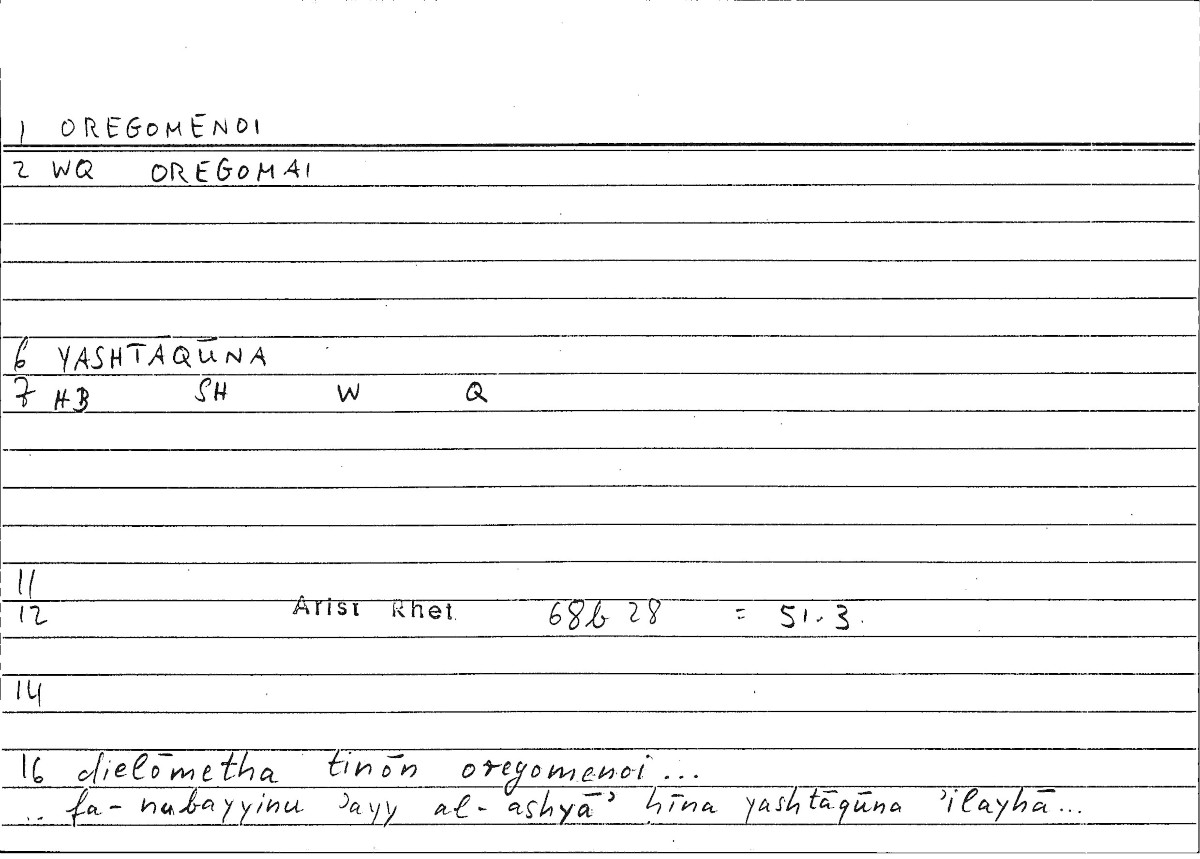 1 OREGOMENOI
2 WQ OREGOMAI
6 YASHTĀQŪNA
7 HB SH W Q
11
12 Arist Rhet. 68b 28 = 51.3.
14
16 dielōmetha tinōn oregomenoi...
.. fa-nubayyinu ʾayy al-ashyāʾ hīna yashtāqūna ʾilayhā...